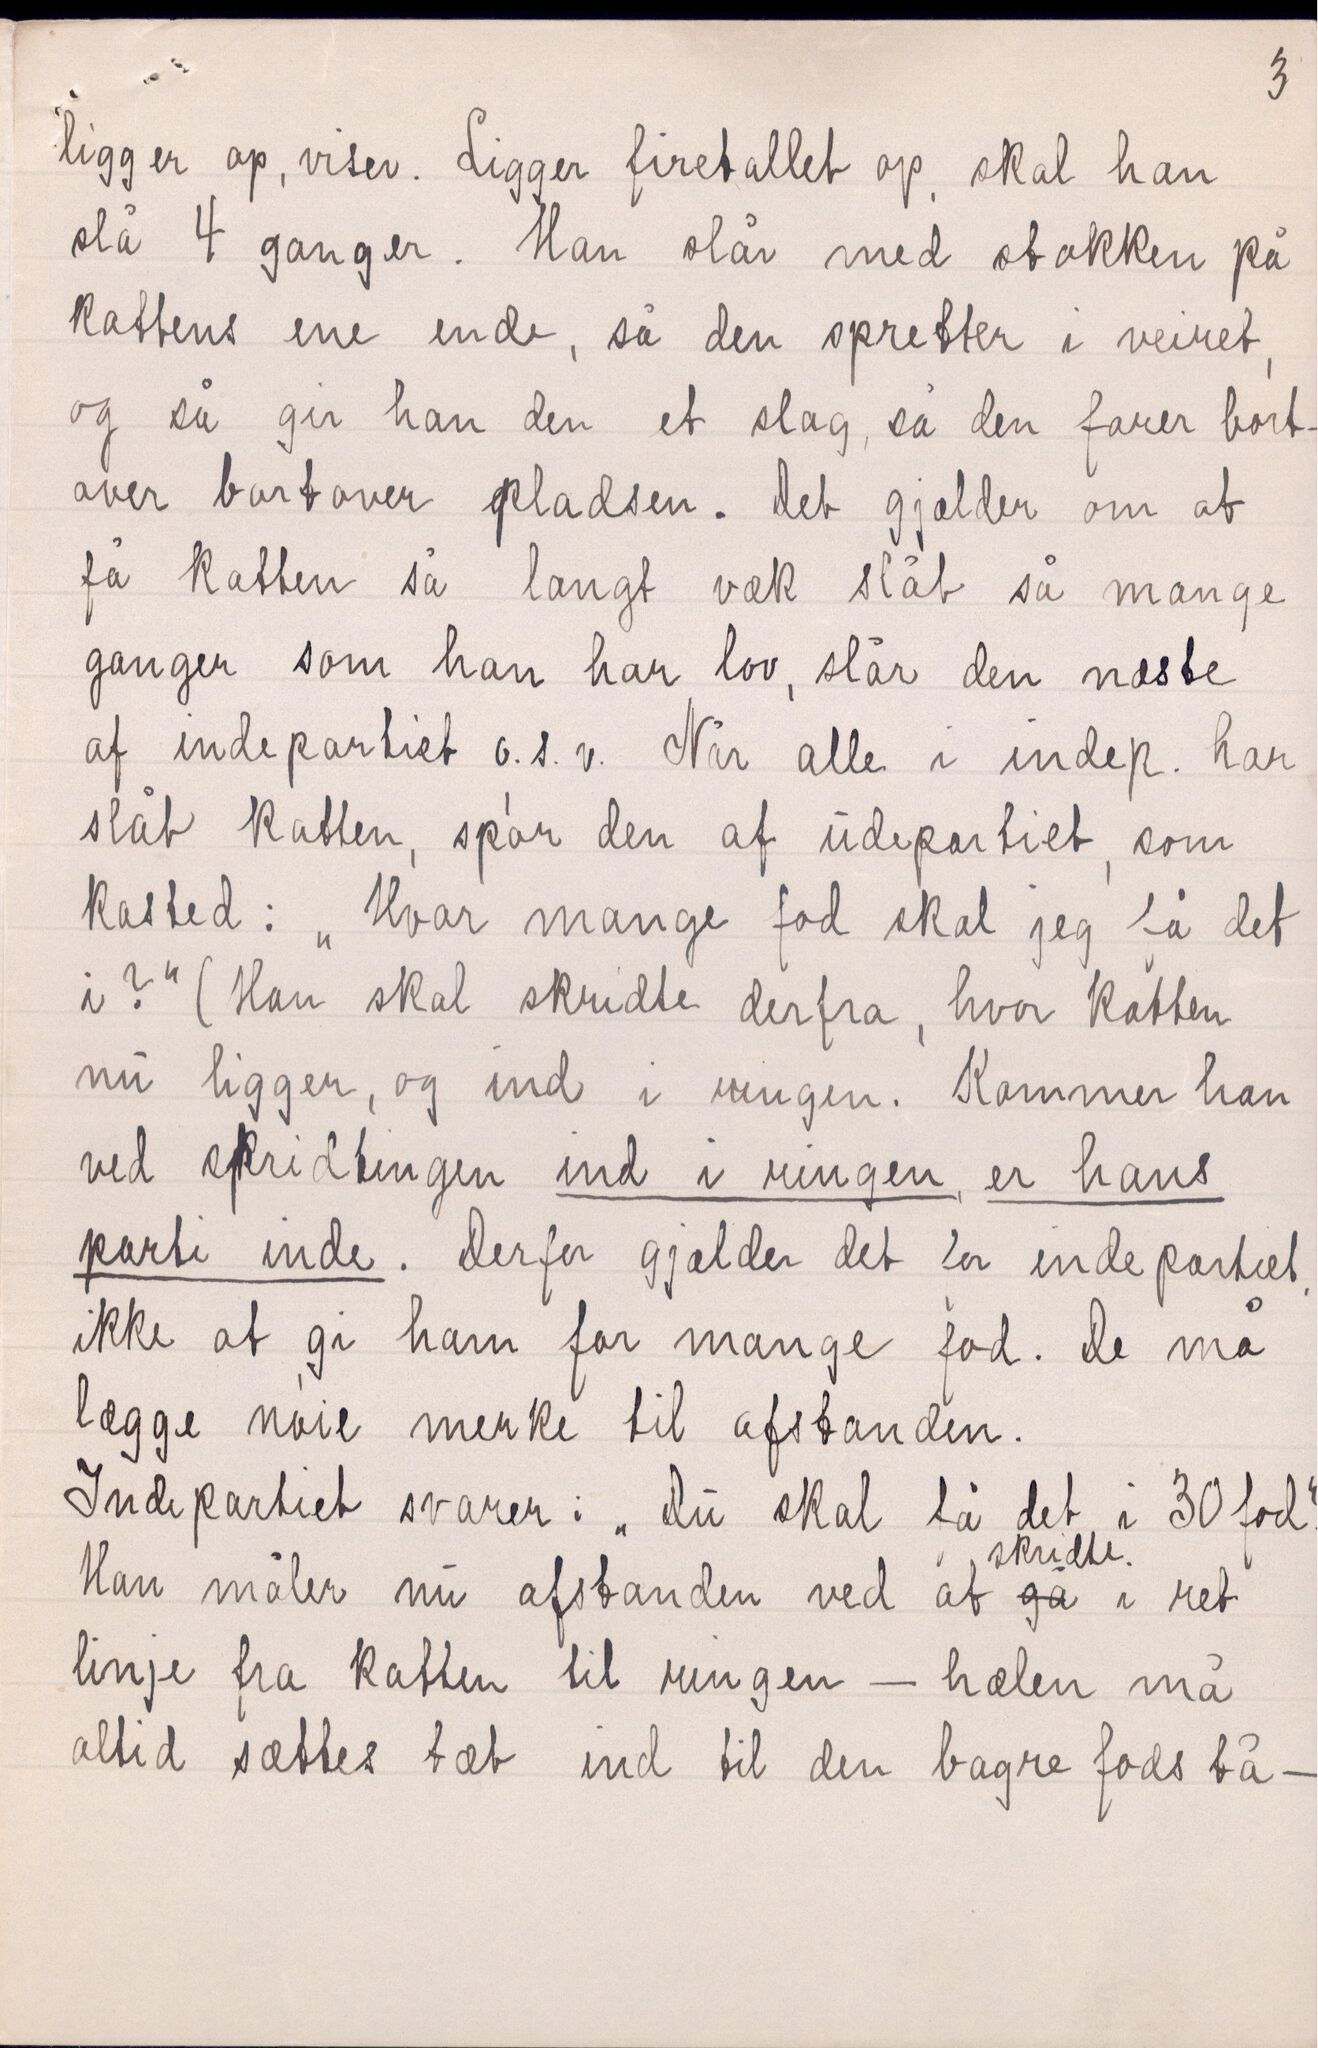 3
ligger op, viser. Ligger firetallet op, skal han
slå 4 ganger. Han slår med stokken på
kattens ene ende, så den spretter i veiret,
og så gir han den et slag, så den farer bort-
over bortover pladsen. Det gjælder om at
få katten så langt væk slåt så mange
ganger som han har lov, slår den næste
af indepartiet o.s.v. Når alle i indep. har
slåt katten, spør den af udepartiet, som
kasted: „Hvor mange fod skal jeg få det
i?“ (Han skal skridte derfra, hvor katten
nu ligger, og ind i ringen. Kommer han
ved skridtingen ind i ringen, er hans
parti inde. Derfor gjælder det for indepartiet,
ikke at gi ham for mange fod. De må
lægge nøie merke til afstanden.
Indepartiet svarer: „Du skal få det i 30 fod“.
skridte.
Han måler nu afstanden ved at gå i ret
linje fra katten til ringen — hælen må
altid sættes tæt ind til den bagre fods tå —